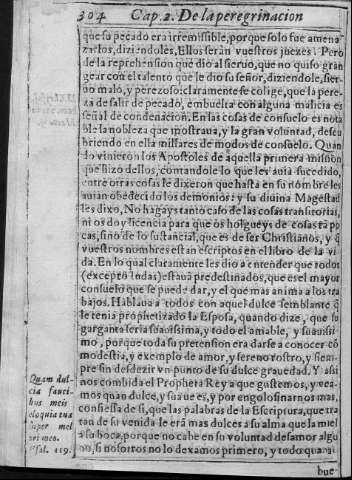 304 Cap. 2. De la peregrinacion
que su pecado era irremissible, porque solo fue amena
zarlos, diziendoles, Ellos seràn vuestros juezes. Pero
de la reprehension que dio al sieruo, que no quiso gran
gear con el talento que le dio su señor, diziendole, sier
uo malo, y perezoso: claramente se colige, que la pere-
za de salir de pecado, embuelta con alguna malicia es
señal de condenacion. En las cosas de consuelo es nota
ble la nobleza que mostraua, y la gran voluntad, descu
briendo en ella millares de modos de consuelo. Quan
do vinieron los Apostoles de aquella primera mission
que hizo dellos, contandole lo que les auia sucedido,
entre otras cosas le dixeron que hasta en su nombre les
auian obedecido los demonios: y su diuina Magestad
les dixo, No hagays tanto caso de las cosas transitorias,
ni os doy licencia para que os holgueys de cosas tã po
cas, sino de lo sustancial, que es de ser Christianos, y q̃
vuestros nombres estan escriptos en el libro de la vi
da. En lo qual claramente les dio a entender que todos
(excepto Iudas) estauã predestinados, que es el mayor
consuelo que se puede dar, y el que mas anima a los tra
bajos. Hablaua a todos con aquel dulce semblante q̃
le tenia prophetizado la Esposa, quando dize, que su
garganta seria suauissima, y todo el amable, y suauissi
mo, porque toda su pretension era darse a conocer cõ
modestia, y exemplo de amor, y sereno rostro, y siem-
pre sin desdezir vn punto de su dulce grauedad. Y assi
nos combida el Propheta Rey a que gustemos, y vea-
mos quan dulce, y suaue es, y por engolosinarnos mas,
confiessa de si, que las palabras de la Escriptura, que tra
tan de su venida le erã mas dulces a su alma que la miel
a su boca, porque no cabe en su voluntad desamor algu
no, si nosotros no lo dexamos primero, y todo quanto
bue-
Quam dul-
cia fauci-
bus meis
eloquia tua
super mel
ori meo.
Psal. 119.